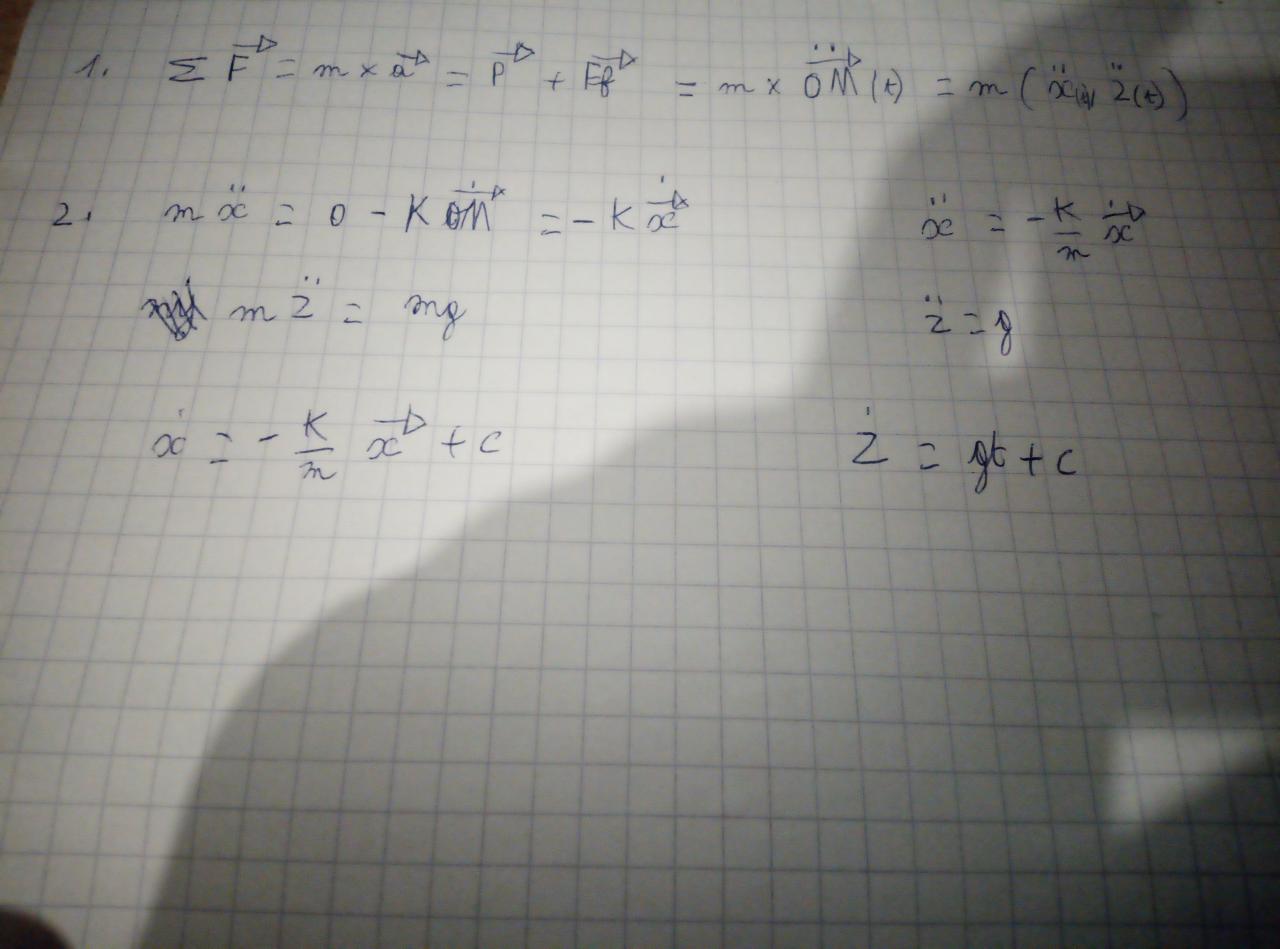 1. Σ F⃗ = m × a⃗ = P⃗ + Ff⃗ = m × OM⃗̈ (t) = m ( ẍ(t) z̈(t) )
2. m ẍ = 0 - K OM⃗̇ = - K ẋ⃗ ẍ = - K/m ẋ⃗
m z̈ = mg z̈ = g
ẋ = - K/m x⃗ + c ż = gt + c